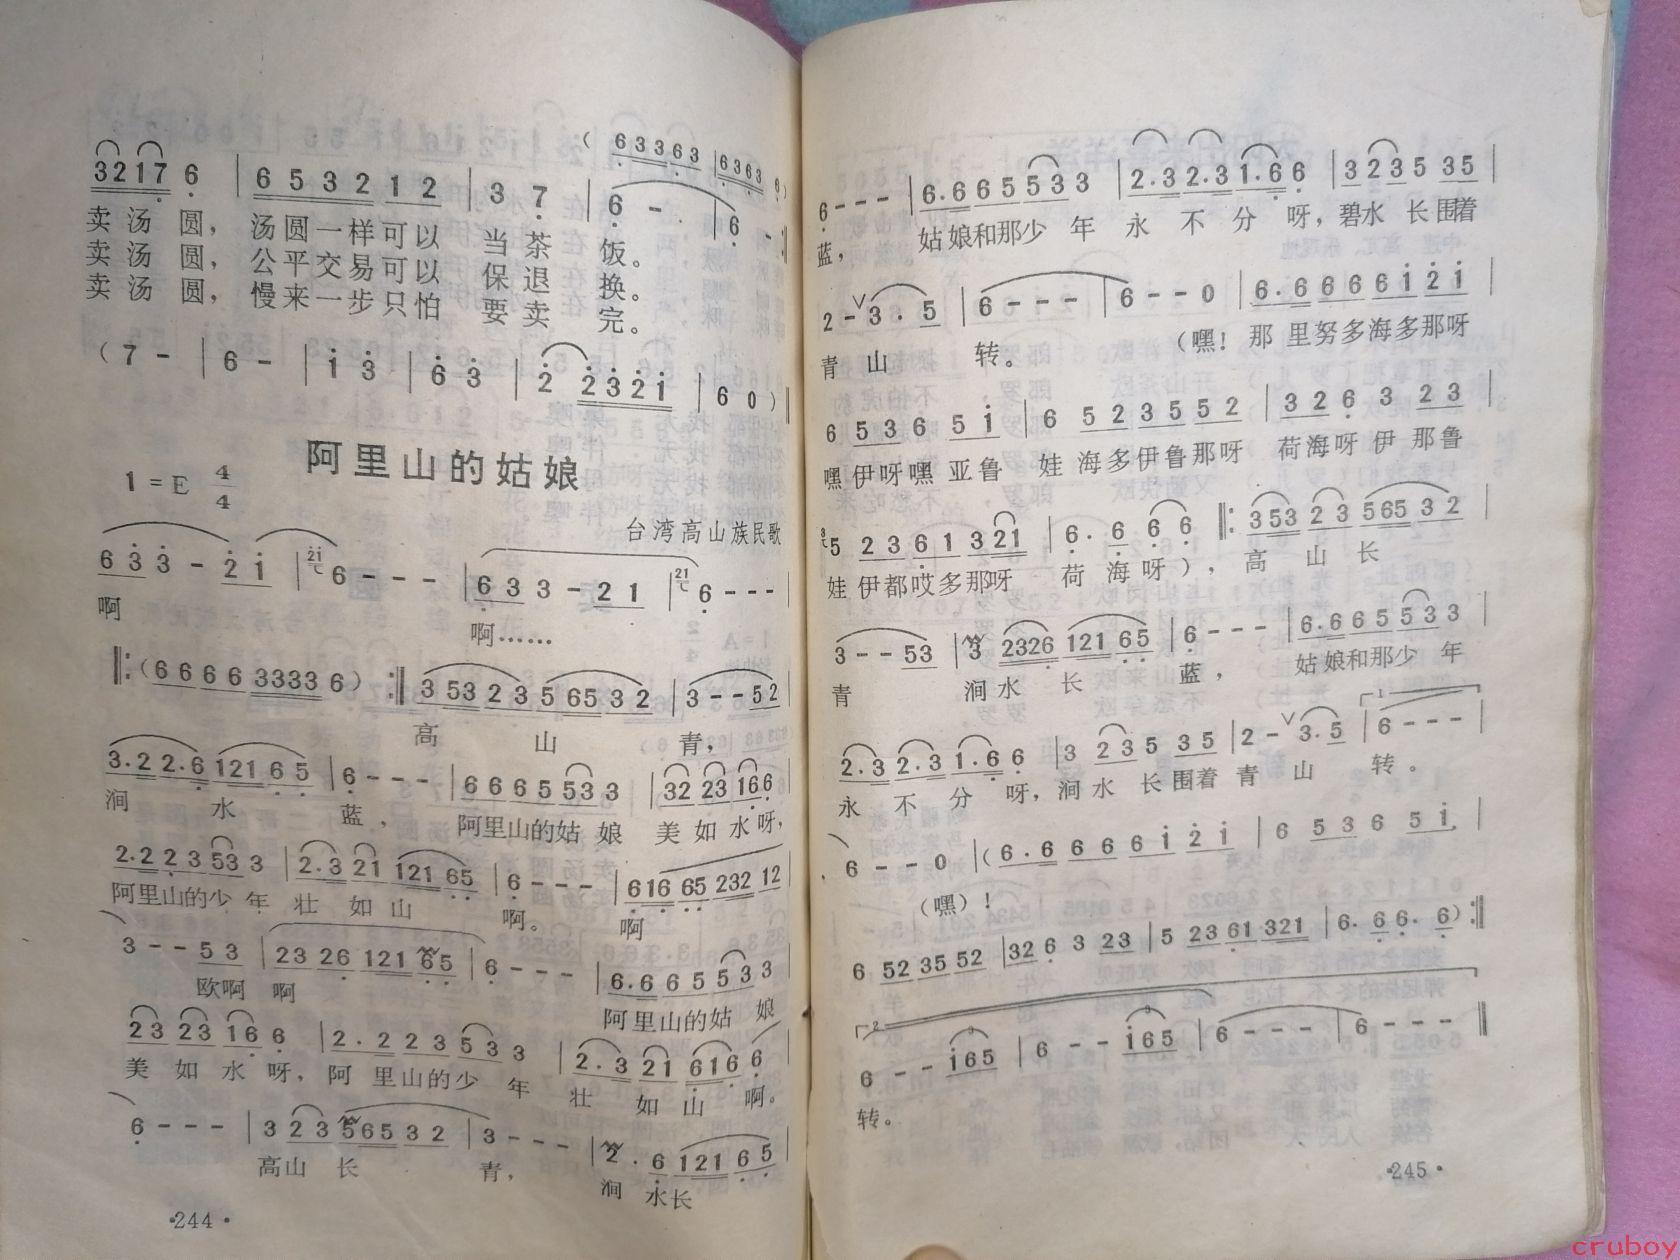 ( 6 3 3 6 3 | 6 3 6 3 6 )
3 2 1 7 6 | 6 5 3 2 1 2 | 3 7 | 6 - | 6 - :‖
卖汤圆, 汤圆一样可以 当茶 饭。
卖汤圆, 公平交易可以 保退 换。
卖汤圆, 慢来一步只怕 要卖 完。
( 7 - | 6 - | 1 3 | 6 3 | 2 2 3 2 1 | 6 0 ) ‖
阿里山的姑娘
1 = E 4/4
台湾高山族民歌
6 3 3 - 2 1 | 21 6 - - - | 6 3 3 - 2 1 | 21 6 - - - |
啊 啊……
‖: ( 6 6 6 6 3 3 3 3 6 ) :‖ 3 5 3 2 3 5 6 5 3 2 | 3 - - 5 2 |
高 山 青,
3 . 2 2 . 6 1 2 1 6 5 | 6 - - - | 6 6 6 5 5 3 3 | 3 2 2 3 1 6 6 |
涧 水 蓝, 阿里山的姑娘 美如水呀,
2 . 2 2 3 5 3 3 | 2 . 3 2 1 1 2 1 6 5 | 6 - - - | 6 1 6 6 5 2 3 2 1 2 |
阿里山的少年 壮如山 啊。 啊
3 - - 5 3 | 2 3 2 6 1 2 1 6 5 | 6 - - - | 6 . 6 6 5 5 3 3
欧啊 啊 阿里山的姑娘
2 3 2 3 1 6 6 | 2 . 2 2 3 5 3 3 | 2 . 3 2 1 6 1 6 6 |
美如水呀, 阿里山的少年 壮如山 啊。
6 - - - | 3 2 3 5 6 5 3 2 | 3 - - - | 2 . 6 1 2 1 6 5
高山长 青, 涧水长
·244·
6 - - - | 6 . 6 6 5 5 3 3 | 2 . 3 2 . 3 1 . 6 6 | 3 2 3 5 3 5 |
蓝, 姑娘和那少年 永不分呀, 碧水长围着
2 - 3 . 5 | 6 - - - | 6 - - 0 | 6 . 6 6 6 6 1 2 1 |
青山 转。 (嘿! 那里努多海多那呀
6 5 3 6 5 1 | 6 5 2 3 5 5 2 | 3 2 6 3 2 3 |
嘿伊呀嘿亚鲁 娃海多伊鲁那呀 荷海呀伊那鲁
5 2 3 6 1 3 2 1 | 6 . 6 6 6 ‖: 3 5 3 2 3 5 6 5 3 2 |
娃伊都哎多那呀 荷海呀), 高 山 长
3 - - 5 3 | 3 2 3 2 6 1 2 1 6 5 | 6 - - - | 6 . 6 6 5 5 3 3 |
青 涧水长 蓝, 姑娘和那少年
2 . 3 2 . 3 1 . 6 6 | 3 2 3 5 3 5 | 2 - 3 . 5 | 1 6 - - - |
永不分呀, 涧水长围着青山 转。
6 - - 0 | ( 6 . 6 6 6 6 1 2 1 | 6 5 3 6 5 1 |
(嘿)!
6 5 2 3 5 5 2 | 3 2 6 3 2 3 | 5 2 3 6 1 3 2 1 | 6 . 6 6 . 6 ) :‖
2 6 - - 1 6 5 | 6 - - 1 6 5 | 6 - - - | 6 - - - ‖
转。
·245·
cruboy